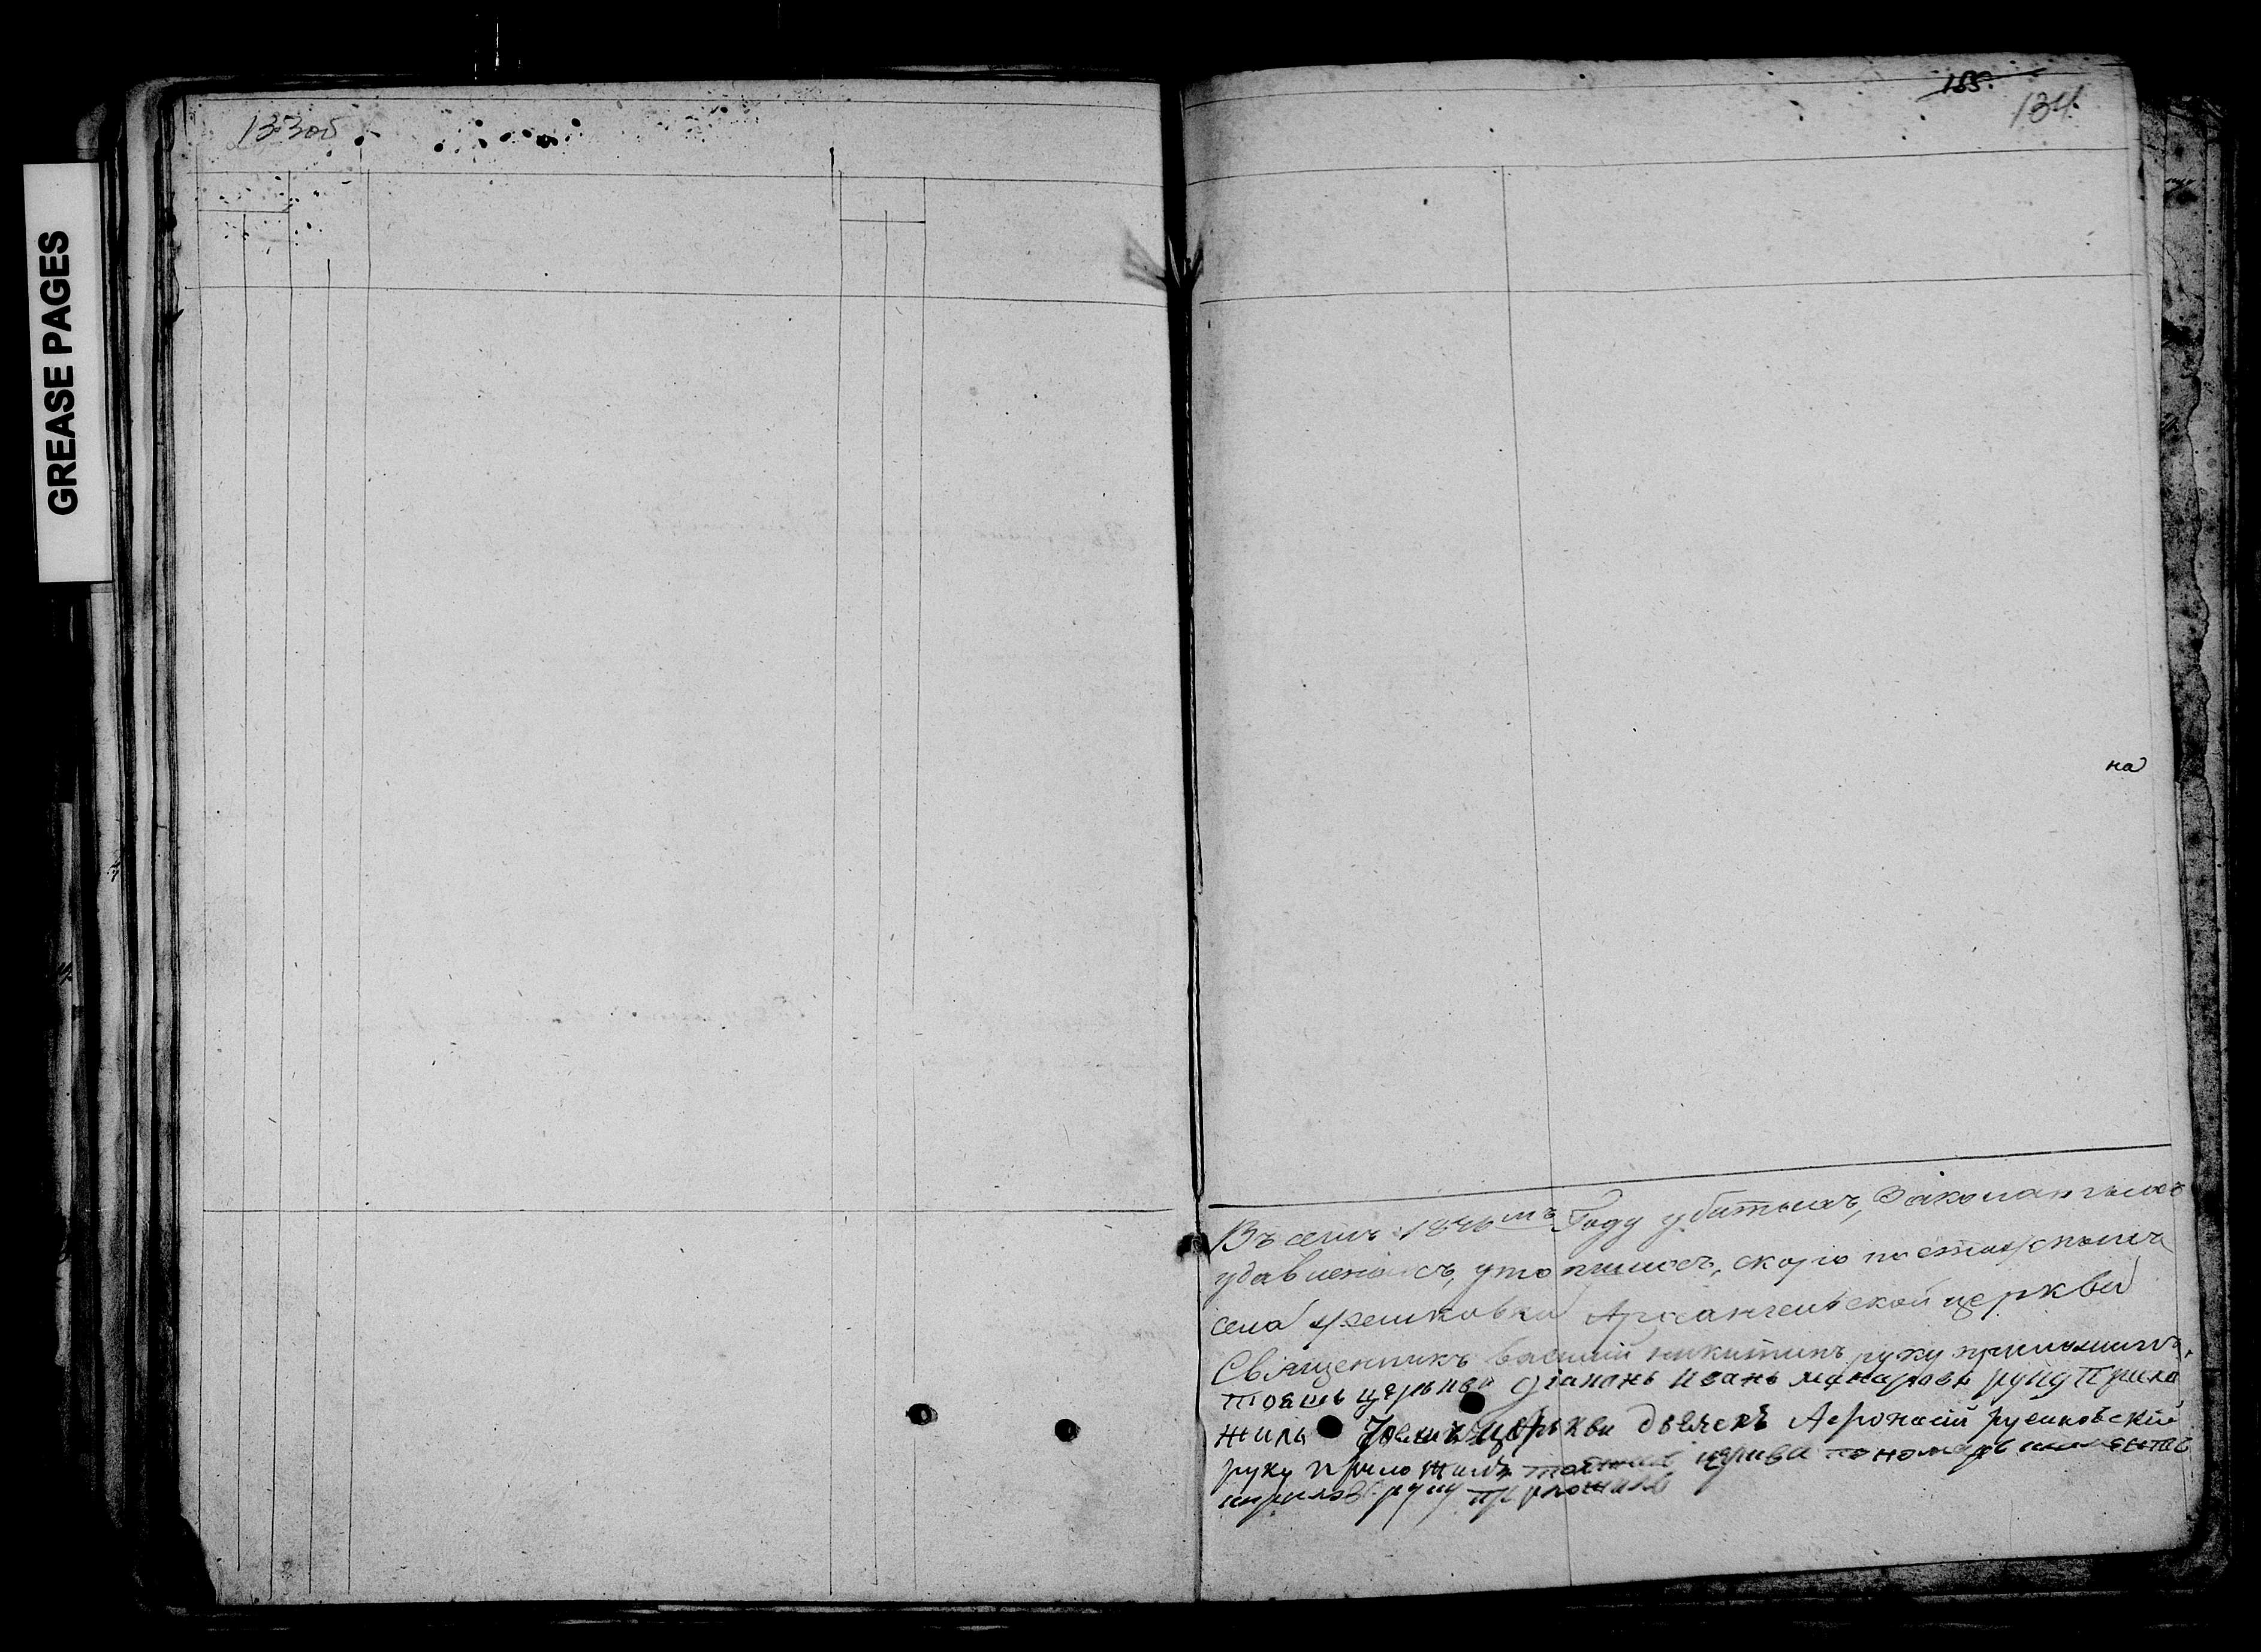 GREASE PAGES
133об
155.
134.
на
Въ семъ 1846мъ Году убитыхъ,
удавленыхъ, утопшихъ, скоро постижныхъ
села Архангельской церкви
Священникъ василий никитинъ руку приложилъ,
тояжь церькви діаконь Иванъ макаровъ руку Прило
жилъ Тоежъ церькви дьячекъ Афонасій
руку приложилъ тояжъ церкви пономарь
руку приложилъ